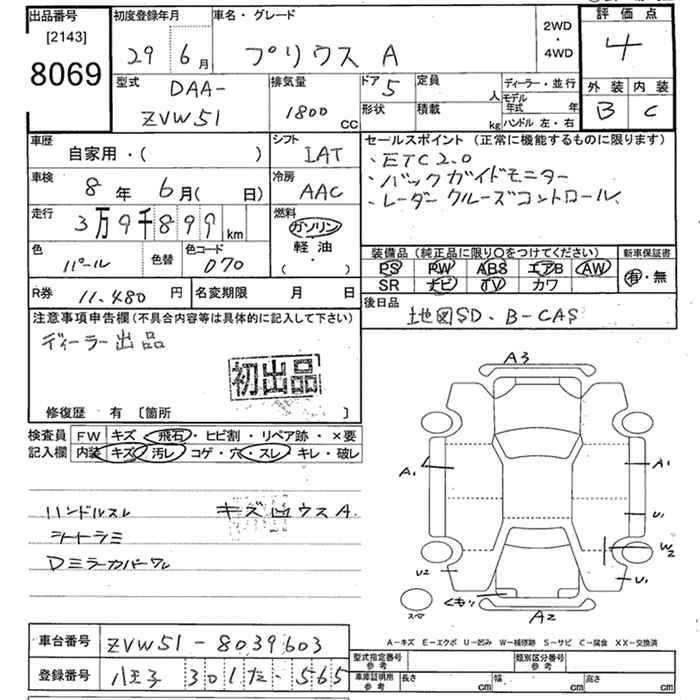 出品番号
[2143]
8069
初度登録年月
29 6月
車名・グレード
プリウス A
2WD
・
4WD
評価点
4
外装 内装
B C
型式 DAA-
ZVW51
排気量
1800 CC
ドア 5
形状
定員 人
積載 kg
ディーラー・並行
モデル年式 年
ハンドル 左・右
車歴
自家用・( )
シフト
IAT
セールスポイント (正常に機能するものに限ります)
・ETC2.0
・バックガイドモニター
・レーダークルーズコントロール
車検
8年 6月( 日)
冷房
AAC
走行
3万9千899km
燃料
ガソリン
軽油
( ・ )
色
パール
色替
色コード
070
装備品 (純正品に限り○をつけてください)
PS PW ABS エアB AW
SR ナビ TV カワ
新車保証書
有・無
R券 11,480円
名変期限 月 日
後日品
地図SD、B-CAS
注意事項申告欄(不具合内容等は具体的に記入して下さい)
ディーラー出品
初出品
修復歴 有 〔箇所 〕
検査員 FW キズ・飛石・ヒビ割・リペア跡・×要
記入欄 内装 キズ・汚レ・コゲ・穴・スレ・キレ・破レ
ハンドルスレ
シートシミ
Dミラーカバーワレ
A3
A1
A1
U1
W2
U2
U1
くもり
スペア
A2
A-キズ E-エクボ U-凹み W-補修跡 S-サビ C-腐食 XX-交換済
車台番号 ZVW51-8039603
登録番号 八王子 301 た・565
型式指定番号 参考
類別区分番号 参考
車庫証明用 参考
長さ cm 幅 cm 高さ cm